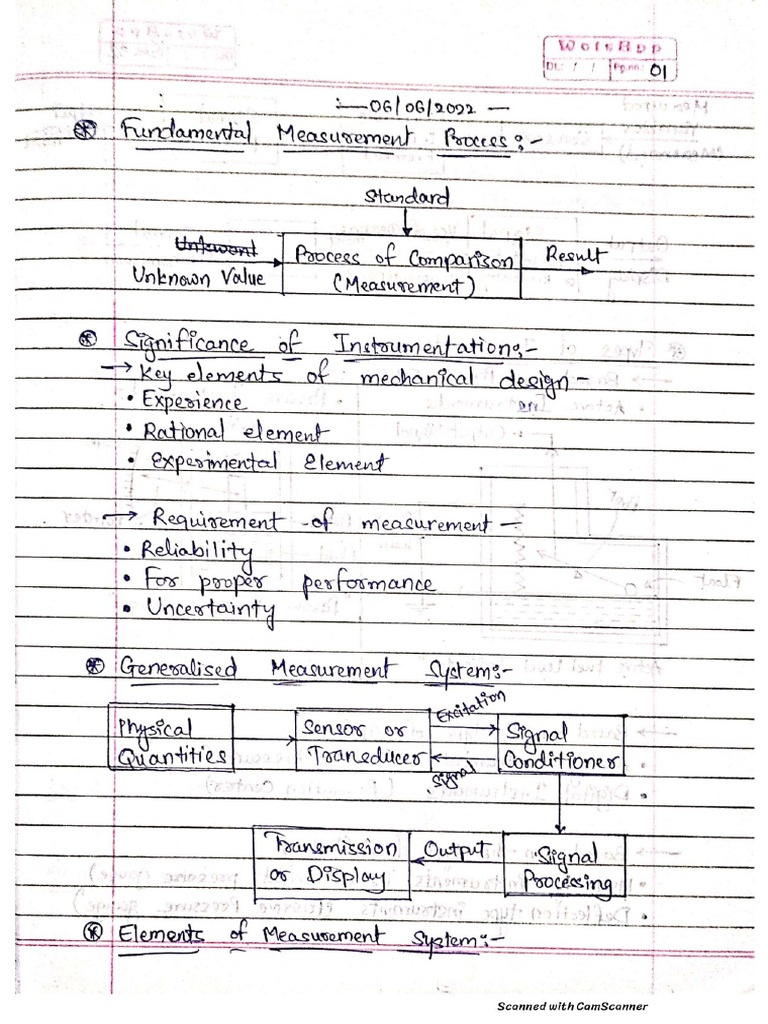 WorkApp
Dt.: / / Pg.no.: 01
:— 06/06/2022 —
* Fundamental Measurement Process:-
Standard
Unkwont
Process of Comparison
Result
Unknown Value
(Measurement)
* Significance of Instrumentation:-
→ Key elements of mechanical design -
• Experience
• Rational element
• Experimental Element
→ Requirement of measurement -
• Reliability
• For proper performance
• Uncertainty
* Generalised Measurement System:-
Physical Quantities
Sensor or Transducer
Excitation
Signal
Signal Conditioner
Transmission or Display
Output
Signal Processing
* Elements of Measurement System:-
Scanned with CamScanner